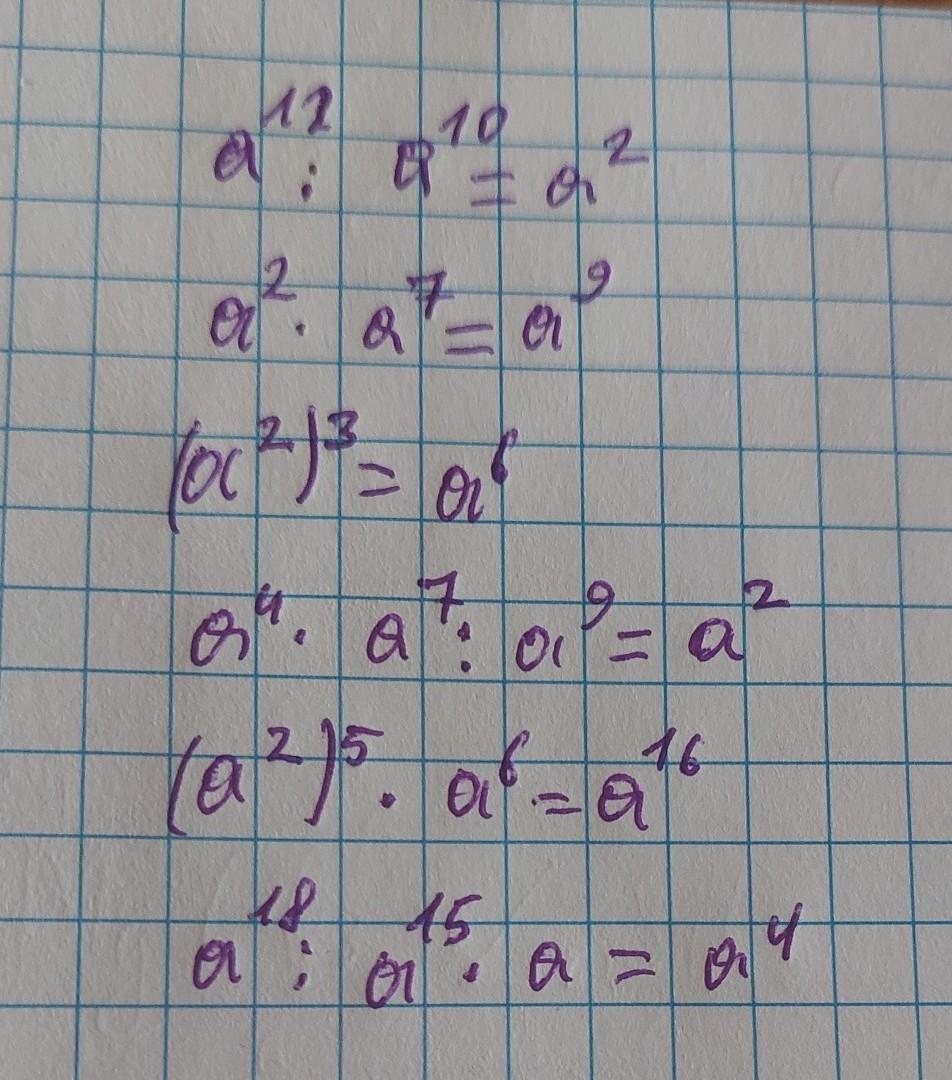 a¹² : a¹⁰ = a²
a² · a⁷ = a⁹
(a²)³ = a⁶
a⁴ · a⁷ : a⁹ = a²
(a²)⁵ · a⁶ = a¹⁶
a¹⁸ : a¹⁵ · a = a⁴